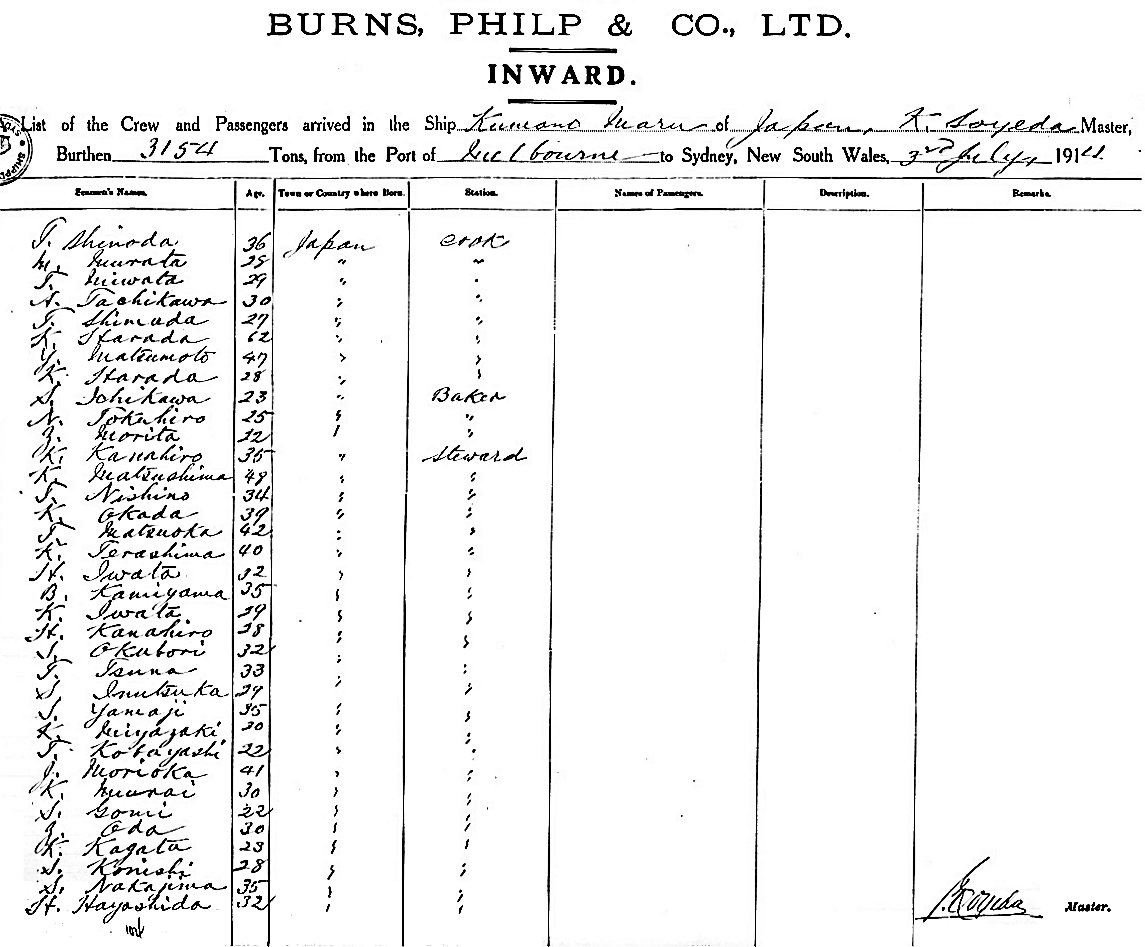 BURNS, PHILP & CO., LTD.
INWARD.
List of the Crew and Passengers arrived in the Ship Kumano Maru of Japan, K. Soyeda Master,
Burthen 3154 Tons, from the Port of Melbourne to Sydney, New South Wales, 3rd July 1914
Seamen's Names. Age. Town or Country where Born. Station. Names of Passengers. Description. Remarks.
T. Shinoda 36 Japan Cook
M. Murata 25 " "
T. Miwata 29 " "
N. Tachikawa 30 " "
T. Shimada 27 " "
K. Harada 62 " "
Y. Matsumoto 47 " "
K. Harada 28 " "
S. Ichikawa 23 " Baker
N. Tokuhiro 25 " "
Z. Morita 22 " "
K. Kanahiro 35 " Steward
K. Matsushima 48 " "
T. Nishino 34 " "
K. Okada 39 " "
T. Matsuoka 42 " "
K. Terashima 40 " "
H. Iwata 32 " "
B. Kamiyama 35 " "
K. Iwata 29 " "
H. Kanahiro 28 " "
S. Okubori 32 " "
T. Tsuna 33 " "
S. Inutsuka 29 " "
S. Yamaji 35 " "
K. Miyazaki 20 " "
T. Kobayashi 22 " "
J. Morioka 41 " "
K. Murai 30 " "
S. Gomi 22 " "
Oda 30 " "
K. Kagata 23 " "
S. Konishi 28 " "
S. Nakajima 35 " "
H. Hayashida 32 " "
K. Soyeda Master.